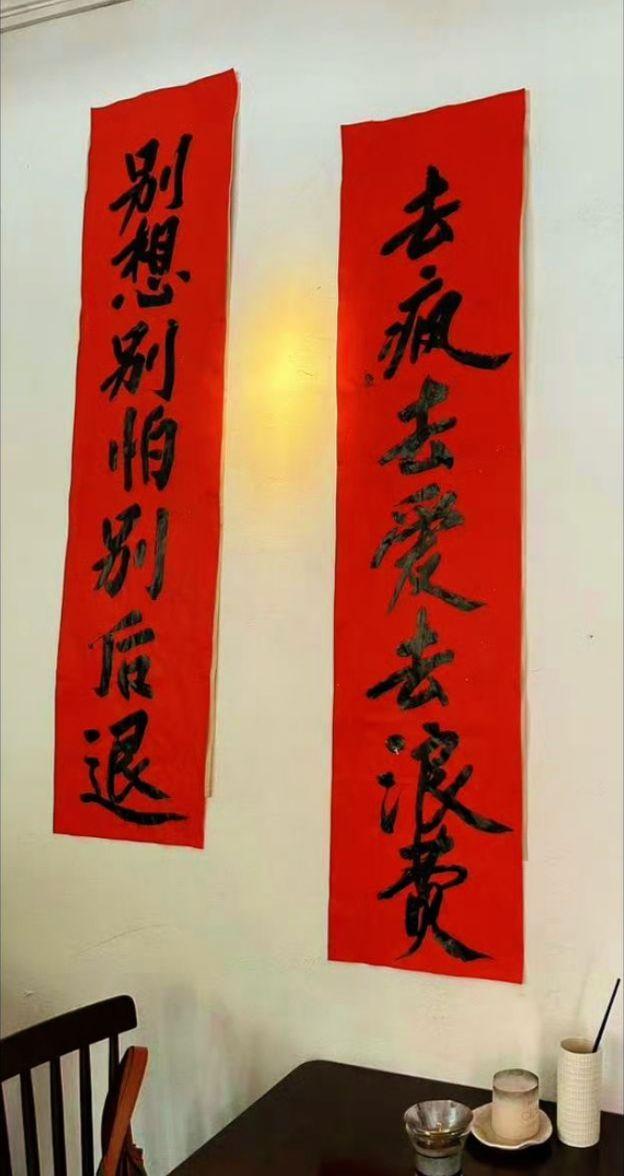 去疯去爱去浪费
别想别怕别后退